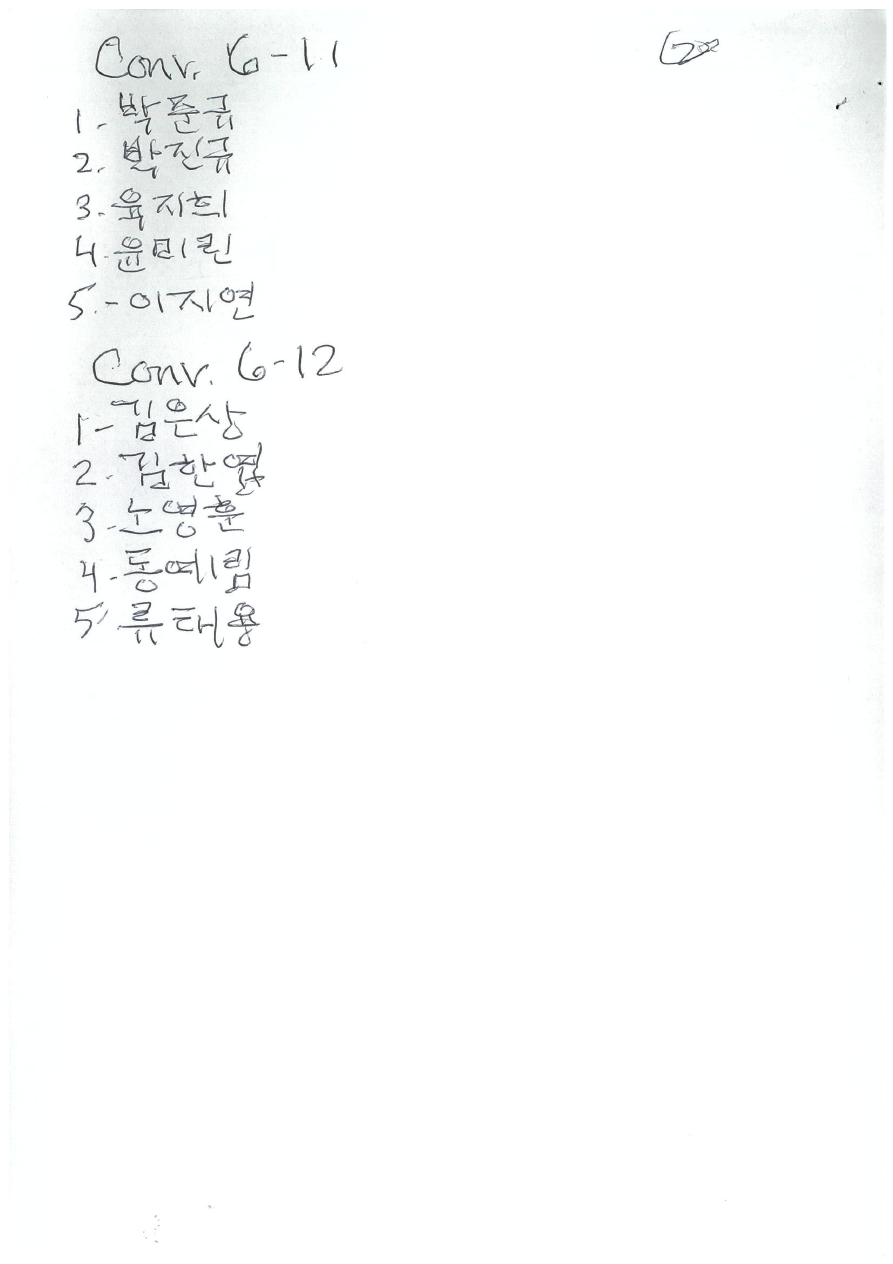 Conv. 6-11
1. 박준규
2. 박진규
3. 육지희
4. 윤미린
5. 이지연
Conv. 6-12
1- 김은상
2. 김한열
3. 노영훈
4. 동예림
5 류태용